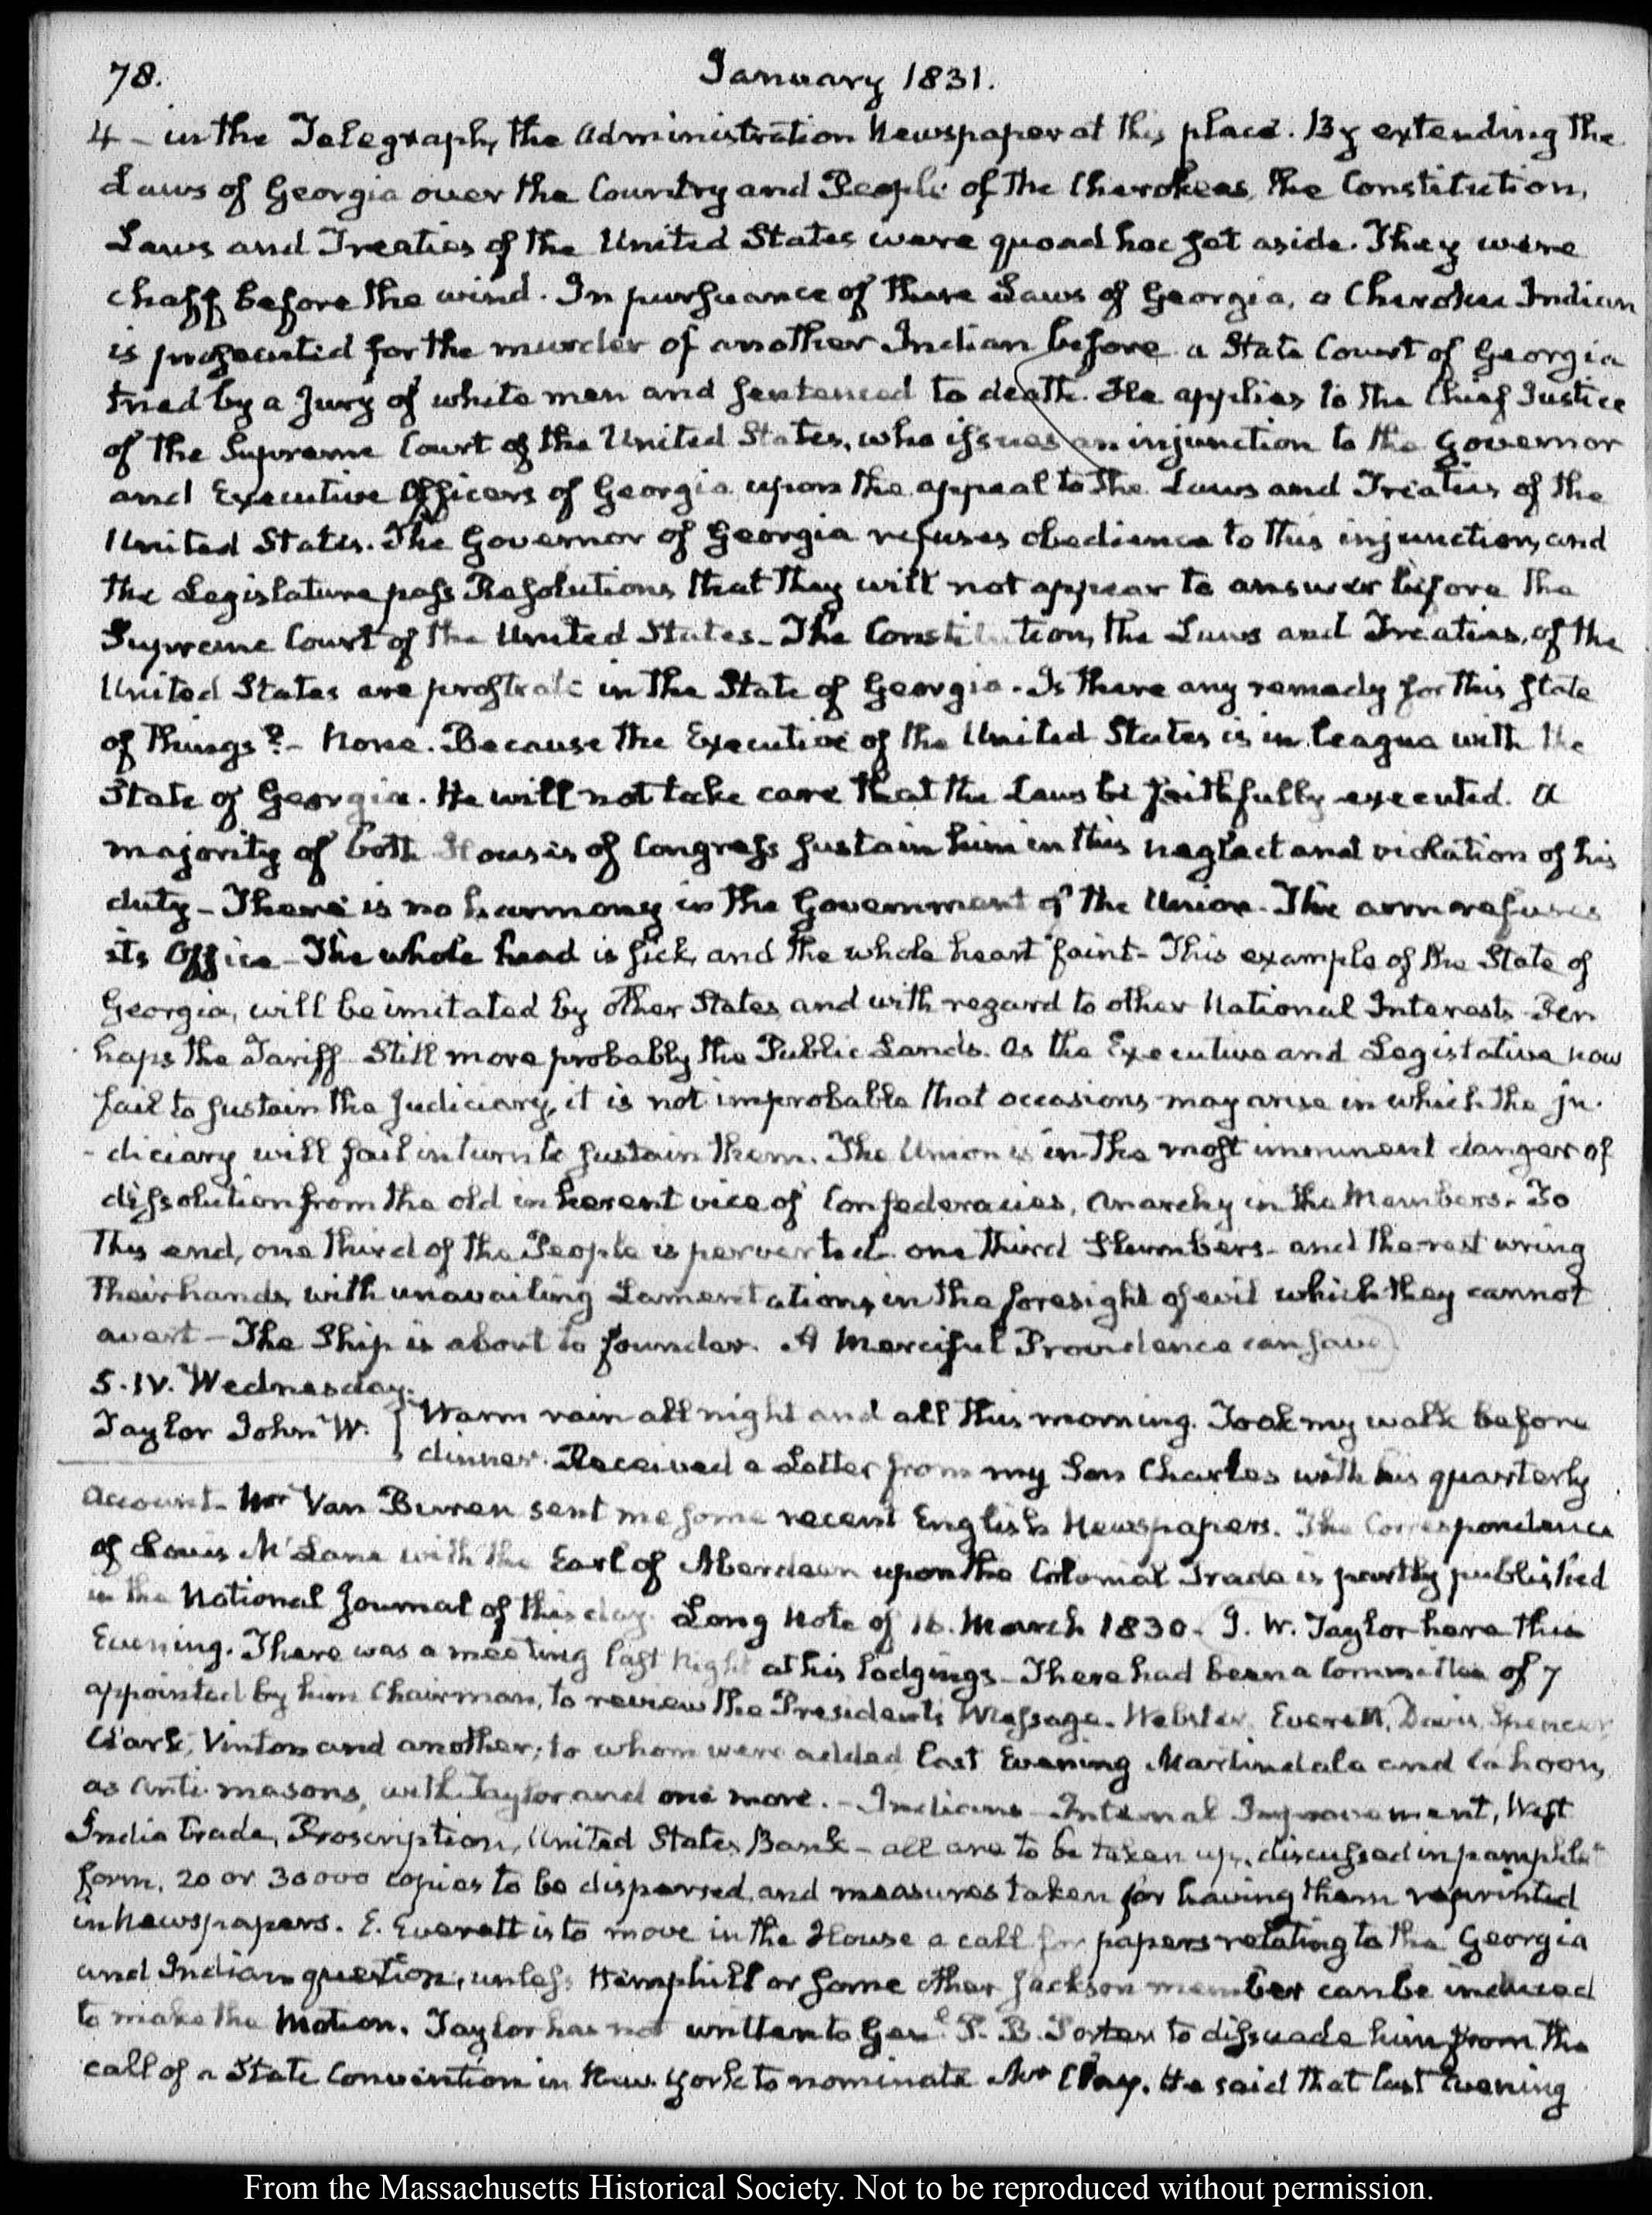 78.
January 1831.
4 – in the Telegraph, the Administration Newspaper at this place. By extending the
Laws of Georgia over the Country and People of the Cherokees, the Constitution,
Laws and Treaties of the United States were quoad hoc set aside. They were
chaff before the wind. In pursuance of these Laws of Georgia, a Cherokee Indian
is prosecuted for the murder of another Indian before a State Court of Georgia
tried by a Jury of white men and sentenced to death. He applies to the Chief Justice
of the Supreme Court of the United States, who issues an injunction to the Governor
and Executive Officers of Georgia upon the appeal to the Laws and Treaties of the
United States. The Governor of Georgia refuses obedience to this injunction, and
the Legislature pass Resolutions that they will not appear to answer before the
Supreme Court of the United States – The Constitution, the Laws and Treaties, of the
United States are prostrate in the State of Georgia – Is there any remedy for this state
of things? – None. Because the Executive of the United States is in league with the
State of Georgia. He will not take care that the Laws be faithfully executed. A
majority of both Houses of Congress sustain him in this neglect and violation of his
duty – There is no harmony in the Government of the Union – The arm refuses
its Office – The whole head is sick, and the whole heart faint – This example of the State of
Georgia, will be imitated by other States, and with regard to other National Interests – Per
haps the Tariff – Still more probably the Public Lands. As the Executive and Legislative now
fail to sustain the Judiciary, it is not improbable that occasions may arise in which the ju-
-diciary will fail in turn to sustain them. The Union is in the most imminent danger of
dissolution from the old inherent vice of Confederacies, Anarchy in the Members. To
this end, one third of the People is perverted – one third slumbers – and the rest wring
their hands, with unavailing Lamentations, in the foresight of evil which they cannot
avert – The Ship is about to founder. A Merciful Providence can save
5. IV. Wednesday.
Taylor John W.
Warm rain all night and all this morning. Took my walk before
dinner. Received a Letter from my Son Charles with his quarterly
Account – Mr Van Buren sent me some recent English Newspapers. The Correspondence
of Louis McLane with the Earl of Aberdeen upon the Colonial Trade is partly published
in the National Journal of this day. Long Note of 16. March 1830 – J. W. Taylor here this
Evening. There was a meeting last Night at his lodgings – There had been a Committee of 7
appointed by him Chairman, to review the President's Message – Webster, Everett, Davis, Spencer,
Clark, Vinton and another; to whom were added last Evening Martindale and Cahoon,
as Anti-masons, with Taylor and one more. – Indians – Internal Improvement, West
India trade, Proscription, United States Bank – all are to be taken up, discussed in pamphlet
form. 20 or 30000 copies to be dispersed, and measures taken for having them reprinted
in Newspapers. E. Everett is to move in the House a call for papers relating to the Georgia
and Indian question, unless Hemphill or some other Jackson member can be induced
to make the Motion. Taylor has not written to Genl P. B. Porter to dissuade him from the
call of a State Convention in New York to nominate Mr Clay. He said that last Evening
From the Massachusetts Historical Society. Not to be reproduced without permission.